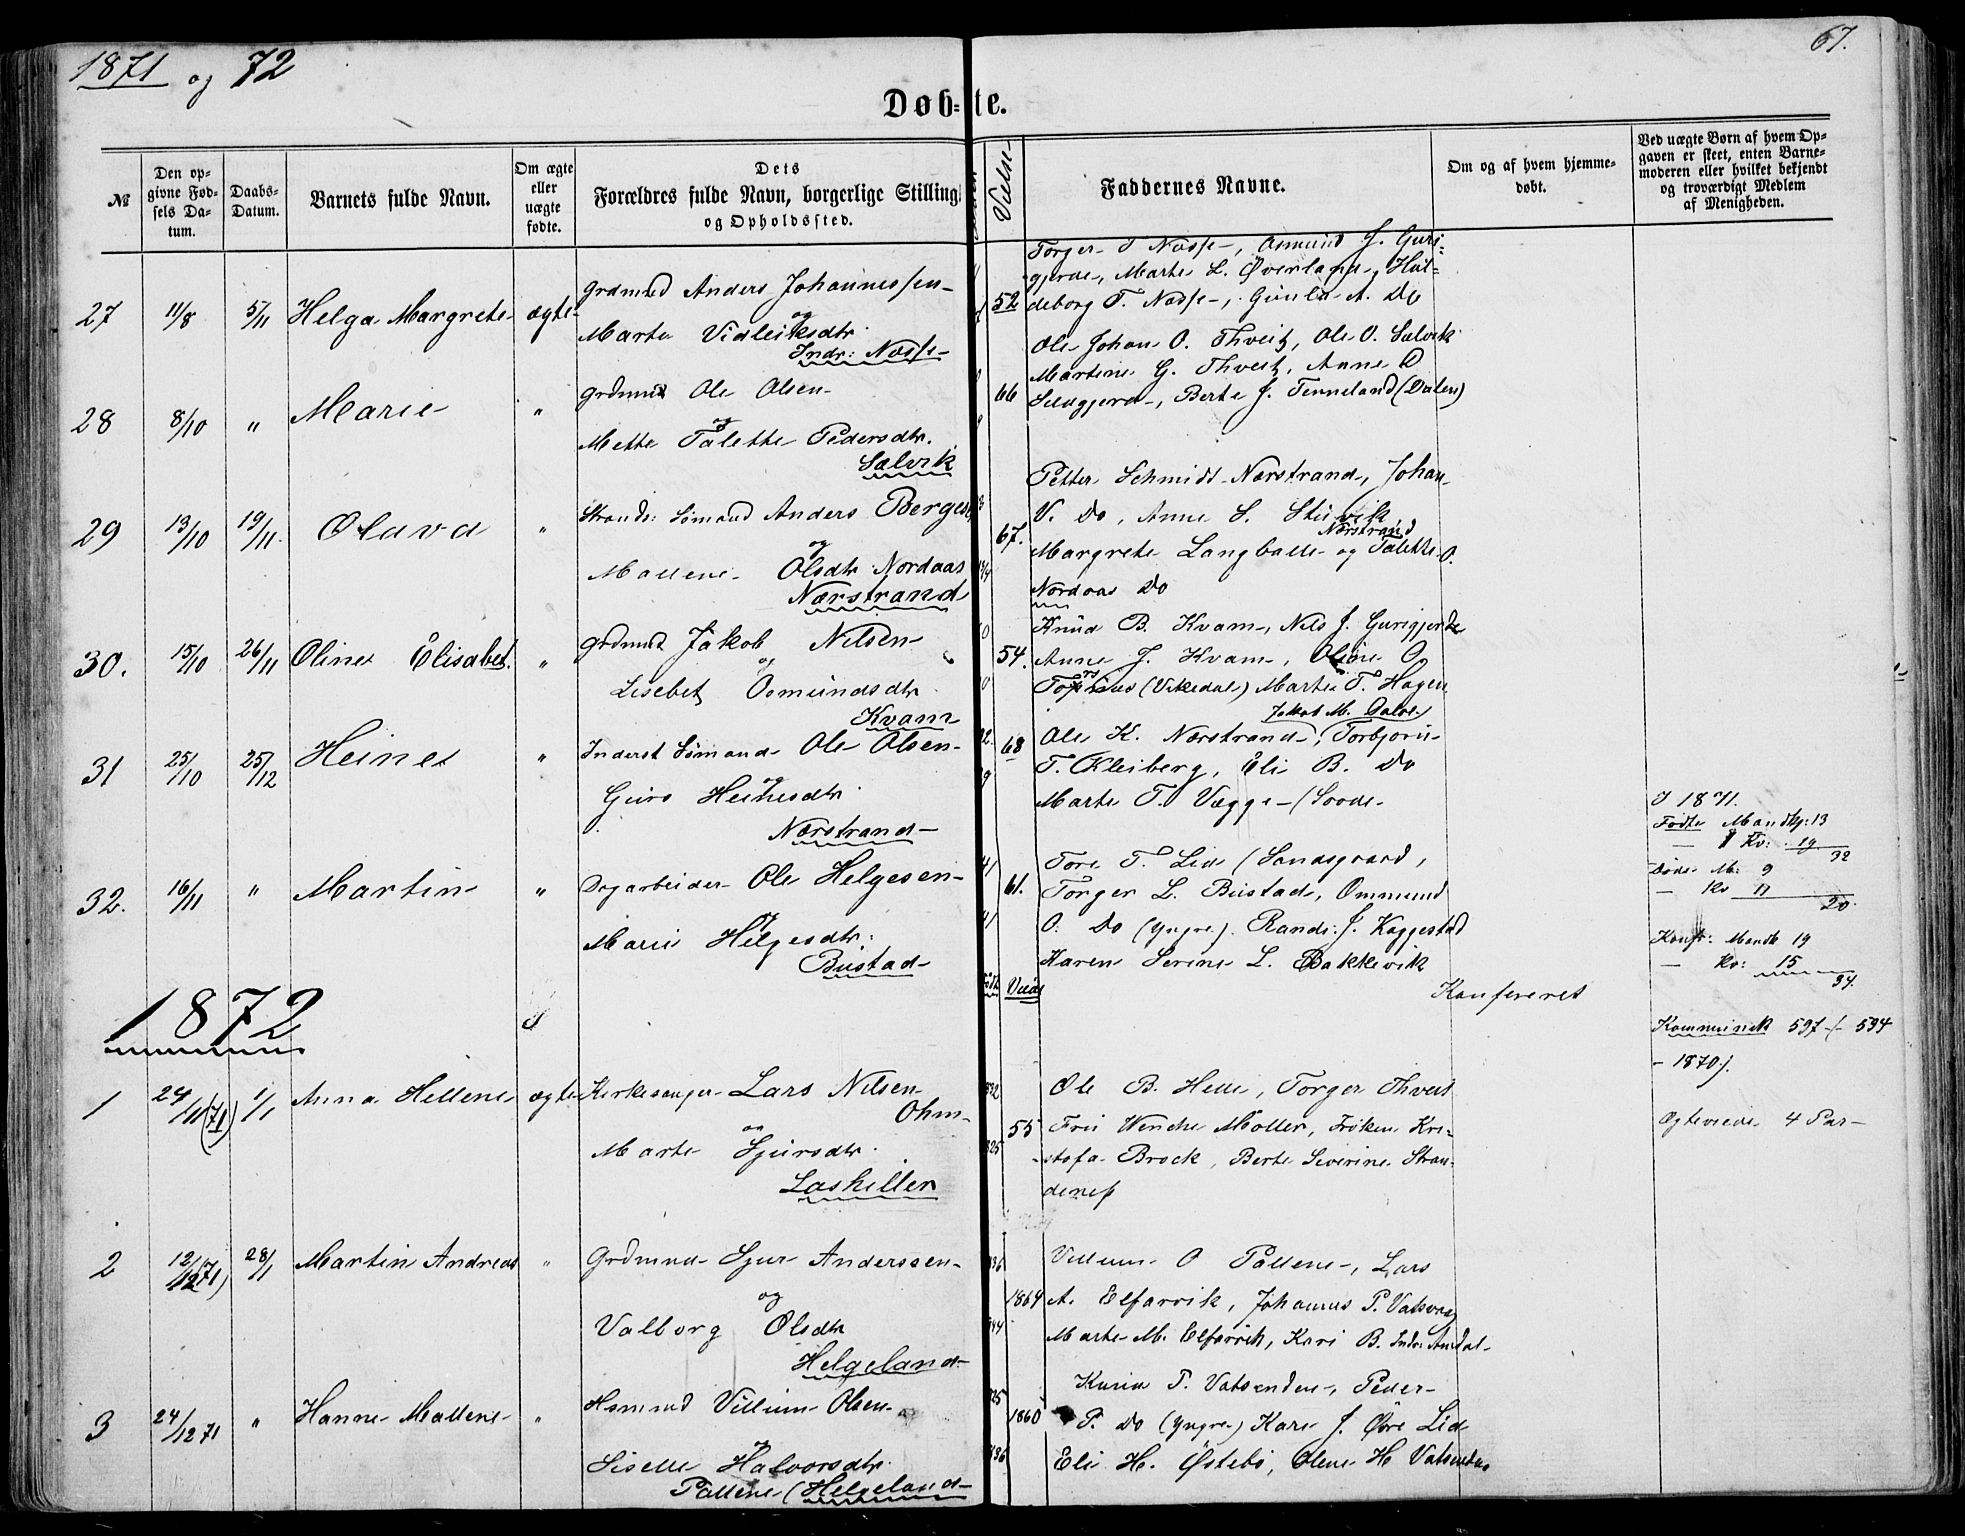 1871 og 72
67.
Døb-te.
№
Den opgivne Fødsels Datum.
Daabs-Datum.
Barnets fulde Navn.
Om ægte eller uægte fødte.
Dets Forældres fulde Navn, borgerlige Stilling og Opholdssted.
Faddernes Navne.
Om og af hvem hjemmedøbt.
Ved uægte Børn af hvem Opgaven er skeet, enten Barnemoderen eller hvilket bekjendt og troværdigt Medlem af Menigheden.
27 11/8 5/11 Helga Margrete ægte
Grdmnd Anders Johannessen
og
Marta Vidleiksdtr.
Indr: Næsse
52
Torger Næsse, Osmund J. Guri-
gjerde, Marte L. Øverland, Hal-
deborg T. Næsse, Gunla A. Do
28 8/10 " Marie "
Grdmnd Ole Olsen
og
Mette Talette Pedersdtr.
Sælvik
66
Ole Johan O. Thveit, Ole O. Sælvik
Martine G. Thveit, Anne O
Berte J. Tenneland (Dalen)
29 13/10 19/11. Olava "
Strands: Sømand Anders Berges.
og
Mallene Olsdtr Nordaas
Nærstrand
67.
Petter Schmidt Nærstrand, Johan
V. Do, Anne S. Stuvik
Nærstrand
Margrete Langballe og Talette O.
Nordaas Do
30. 15/10 26/11 Oline Elisabet. "
Grdmnd Jakob Nilsen
og
Lisebet Osmundsdtr
Kvam
54.
Knud B. Kvam, Nils J. Gurigjerde
Anne J. Kvam, Oline O
(Vikedal) Marte T. Hagen
Jakob M. Dalve
31 25/10 25/12 Heine "
Inderst Sømand Ole Olsen
og
Guro Heinesdtr.
Nærstrand
68
Ole K. Nærstrand, Torbjørn
T. Kleiberg, Eli B. Do
Marte T. Vægge (Soode
32. 16/11 " Martin "
Dagarbeider Ole Helgesen
og
Marie Helgesdtr:
Bustad
61.
Tore T. Lid (Sandsgaard,
Torger L. Bustad, Ommund
O. Do (yngre). Randi J. Kaggestad
Karen Serine L. Bakkevik
I 1871.
Fødte Mandkj: 13
— Kv: 19
32
Døde M: 9
— Kv 11
20.
Konf: Mandk 19
— Kv: 15
34.
Konfereret
Kommunik 597 /- 594
- 1870/.
Ægteviede 4 Par
1872
1 24/11(71) 1/1 Anna Hellene ægte
Kirkesanger Lars Nilsen
Ohm
og
Marte Sjursdtr.
Laskillen
832
825
55
Ole B. Helle, Torger Thveit
Fru Wenche Møller, Frøken Kri-
stofa Brock, Berte Severine Stran-
denes
2 12/12(71) 28/1 Martin Andreas "
Grdmnd Sjur Anderssen
og
Valborg Olsdtr
Helgeland
1864
Villum O Pallene, Lars
A. Elfarvik, Johannes P. Vatsvaag
Marte M. Elfarvik, Kari B. Indre Amdal
3 24/12 71 " Hanne Mallene "
Hsmnd Villum Olsen
og
Siselle Halvorsdtr.
Pallene (Helgeland
1860
P. Vatsenden, Peder
P. Do (yngre) Kari J. Øvre Lid
Eli H. Østebø, Olene H Vatsenden